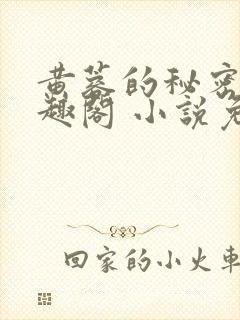 黄墓的秘密
趣阁 小說免
回家的小火車